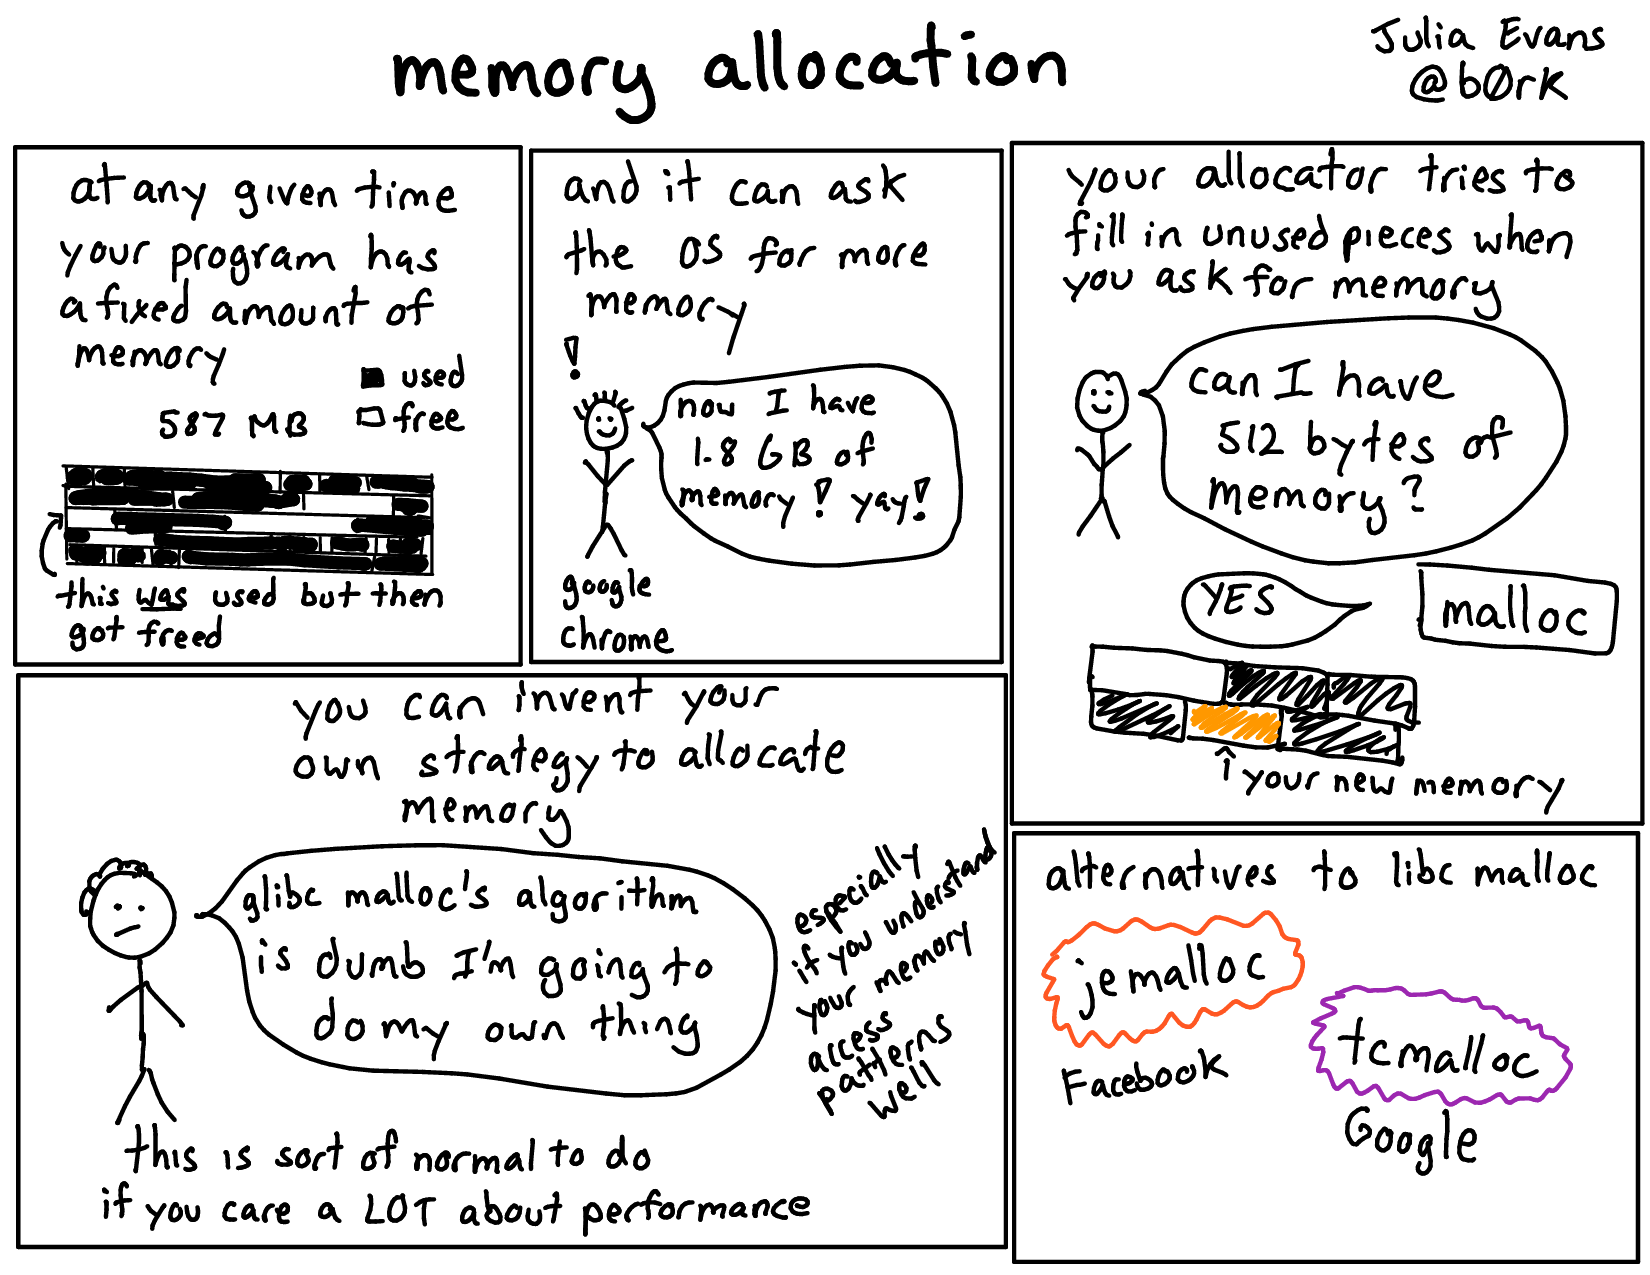 memory allocation
Julia Evans
@b0rk
at any given time
your program has
a fixed amount of
memory
used
587 MB
free
this was used but then
got freed
and it can ask
the OS for more
memory
!
now I have
1.8 GB of
memory! yay!
google
chrome
your allocator tries to
fill in unused pieces when
you ask for memory
can I have
512 bytes of
memory?
YES
malloc
your new memory
you can invent your
own strategy to allocate
memory
glibc malloc's algorithm
is dumb I'm going to
do my own thing
especially
if you understand
your memory
access
patterns
well
this is sort of normal to do
if you care a LOT about performance
alternatives to libc malloc
jemalloc
Facebook
tcmalloc
Google